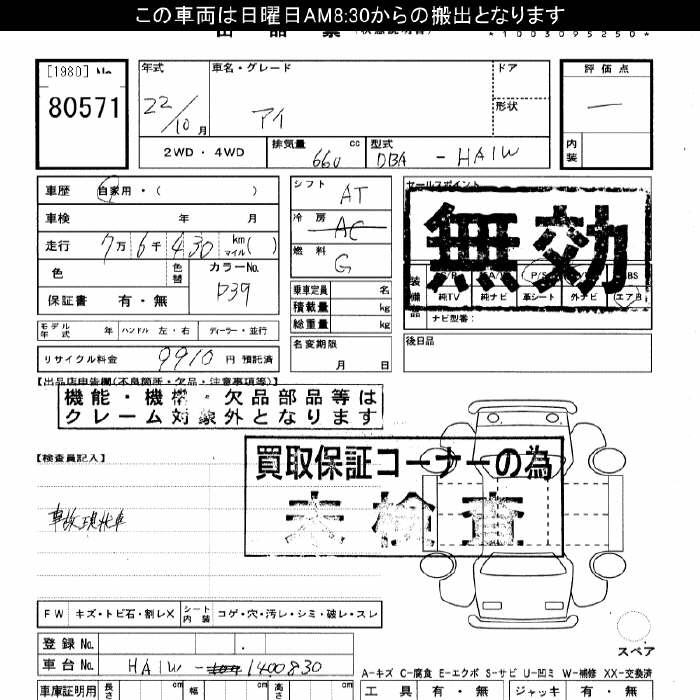 この車両は日曜日AM8:30からの搬出となります
*1003095250*
[1980] No.
80571
年式 車名・グレード ドア 評価点
22/10月 アイ 形状 —
2WD・4WD 排気量 660 cc 型式 DBA - HA1W 内装
車歴 自家用・( )
シフト AT
セールスポイント
無効
車検 年 月
冷房 AC
走行 7万6千430 km マイル ( )
燃料 G
色 色替 カラーNo. D39
P/S
ABS
装備品
純TV 純ナビ 革シート 外ナビ エアB
ナビ型番:
保証書 有・無
乗車定員 名
積載量 kg
総重量 kg
モデル年式 年 ハンドル 左・右 ディーラー・並行
後日品
リサイクル料金 9910 円 預託済
名変期限 月 日
【出品店申告欄(不良箇所・欠品・注意事項等)】
機能・機構・欠品部品等は
クレーム対象外となります
【検査員記入】
買取保証コーナーの為
未検査
事故現状車
FW キズ・トビ石・割レX シート内装 コゲ・穴・汚レ・シミ・破レ・スレ
スペア
登録No.
車台No. HA1W - 1400830
A-キズ C-腐食 E-エクボ S-サビ U-凹ミ W-補修 XX-交換済
車庫証明用 長さ cm 幅 cm 高さ cm
工具 有・無 ジャッキ 有・無